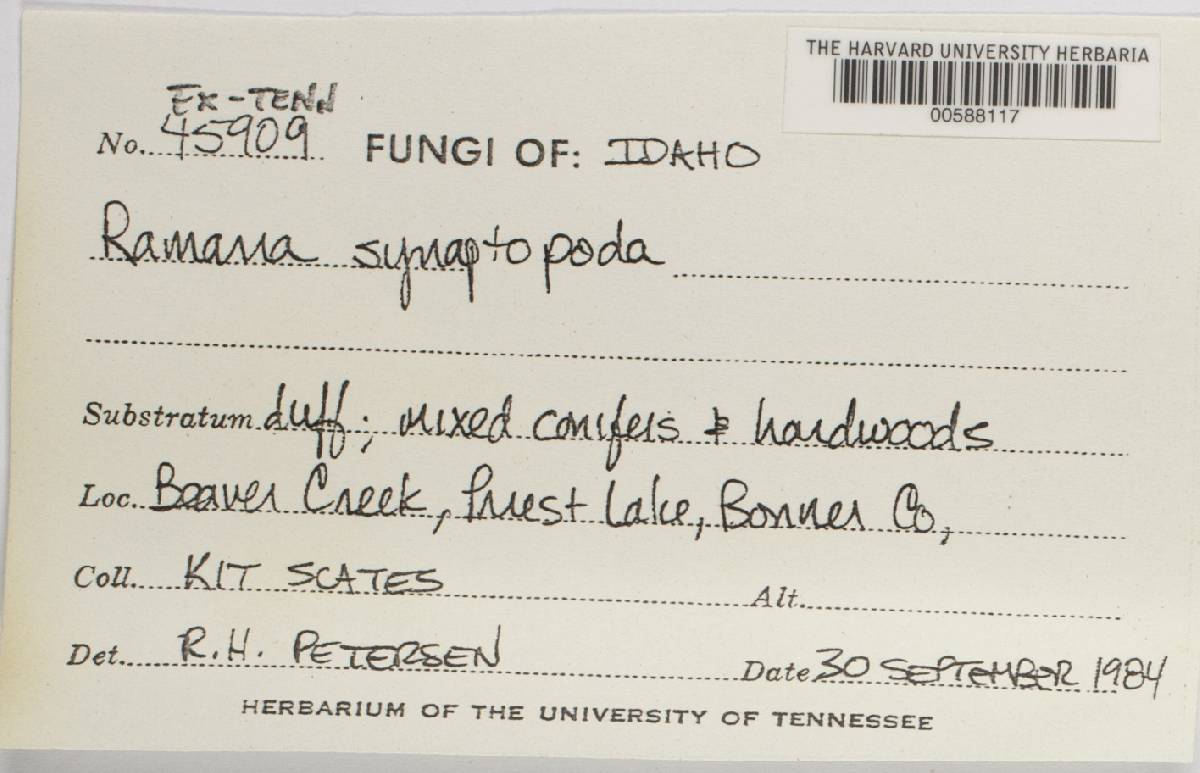 THE HARVARD UNIVERSITY HERBARIA
00588117
EX-TENN
No. 45909 FUNGI OF: IDAHO
Ramaria synaptopoda
Substratum duff; mixed conifers & hardwoods
Loc. Beaver Creek, Priest Lake, Bonner Co,
Coll. KIT SCATES Alt.
Det. R.H. PETERSEN Date 30 SEPTEMBER 1984
HERBARIUM OF THE UNIVERSITY OF TENNESSEE